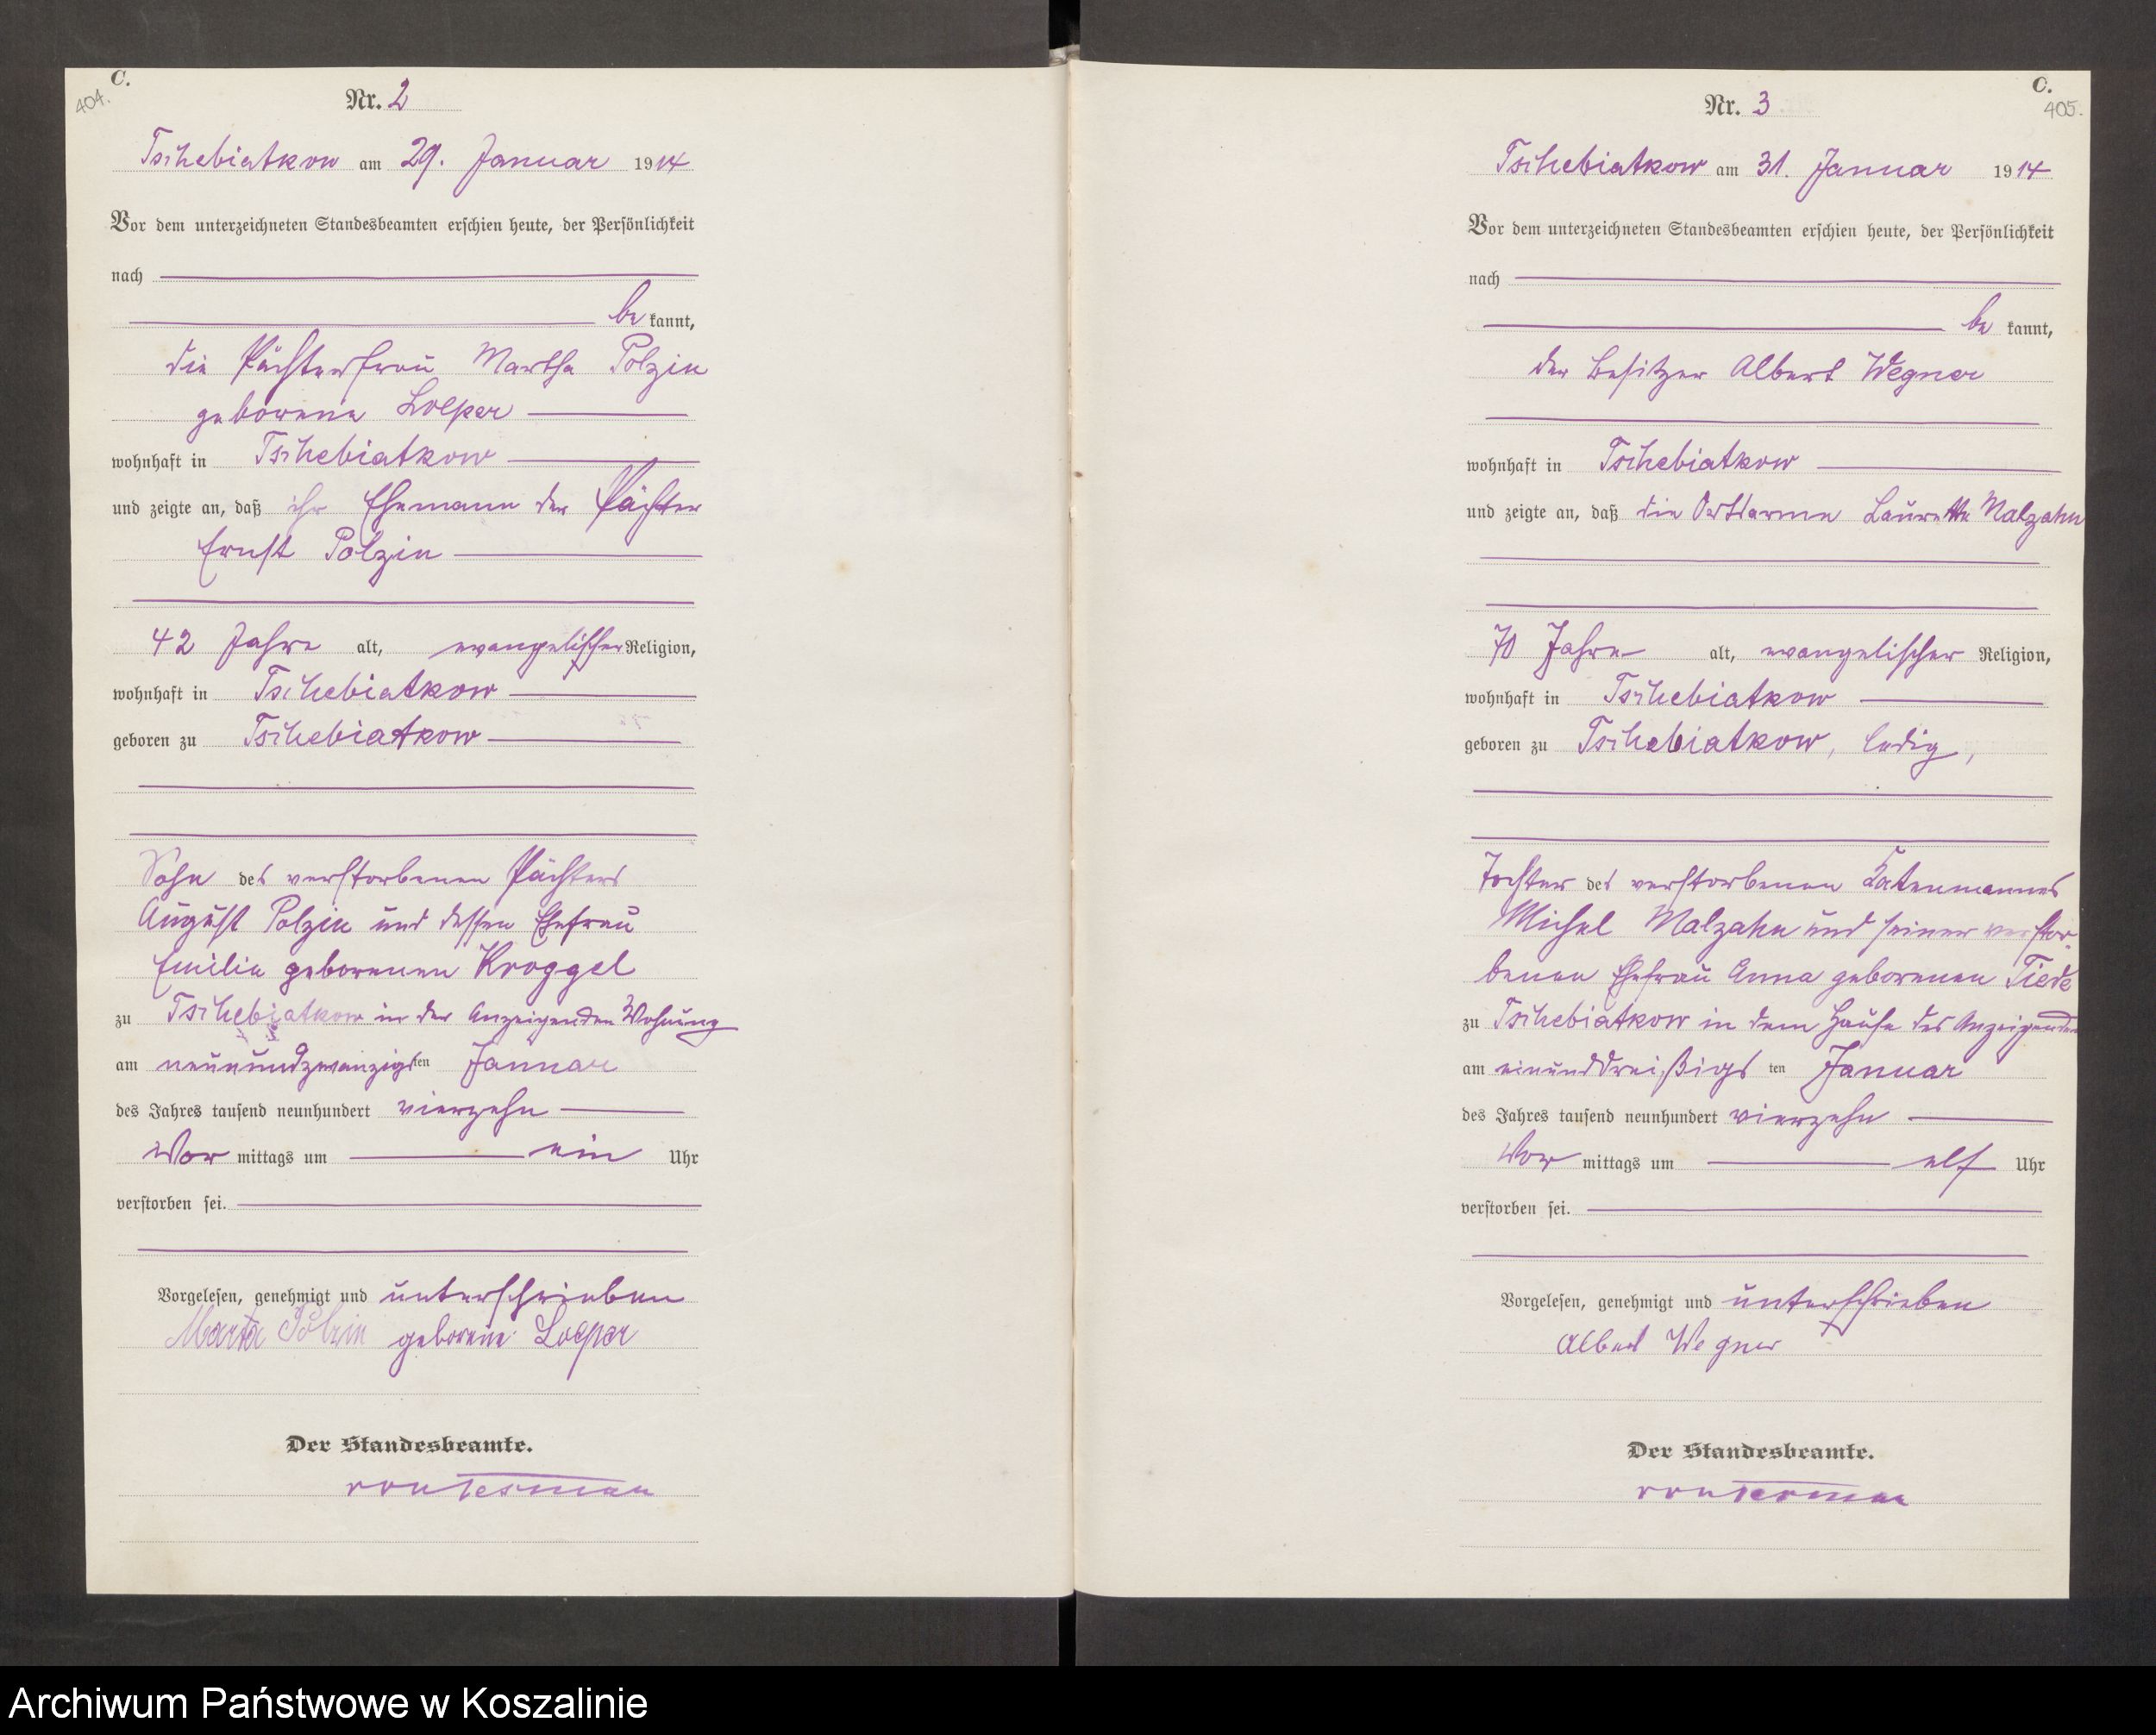 C.
404.
Nr. 2
Tschebiatkow am 29. Januar 1914
Vor dem unterzeichneten Standesbeamten erschien heute, der Persönlichkeit
nach
be kannt,
die Pächterfrau Martha Polzin
geborene Loeper
wohnhaft in Tschebiatkow
und zeigte an, daß ihr Ehemann der Pächter
Ernst Polzin
42 Jahre alt, evangelischer Religion,
wohnhaft in Tschebiatkow
geboren zu Tschebiatkow
Sohn des verstorbenen Pächters
August Polzin und dessen Ehefrau
Emilie geborenen Kroggel
zu Tschebiatkow in der Anzeigenden Wohnung
am neunundzwanzigsten Januar
des Jahres tausend neunhundert vierzehn
Vor mittags um ein Uhr
verstorben sei.
Vorgelesen, genehmigt und unterschrieben
Marta Polzin geborene Loeper
Der Standesbeamte.
C.
405.
Nr. 3
Tschebiatkow am 31. Januar 1914
Vor dem unterzeichneten Standesbeamten erschien heute, der Persönlichkeit
nach
be kannt,
der Besitzer Albert Wegner
wohnhaft in Tschebiatkow
und zeigte an, daß die Ortsarme Laurette Malzahn
70 Jahre alt, evangelischer Religion,
wohnhaft in Tschebiatkow
geboren zu Tschebiatkow, ledig,
Tochter des verstorbenen Katenmannes
Michel Malzahn und seiner verstor-
benen Ehefrau Anna geborenen Tiede
zu Tschebiatkow in dem Hause des Anzeigenden
am einunddreißigs ten Januar
des Jahres tausend neunhundert vierzehn
Vor mittags um elf Uhr
verstorben sei.
Vorgelesen, genehmigt und unterschrieben
Albert Wegner
Der Standesbeamte.
Archiwum Państwowe w Koszalinie